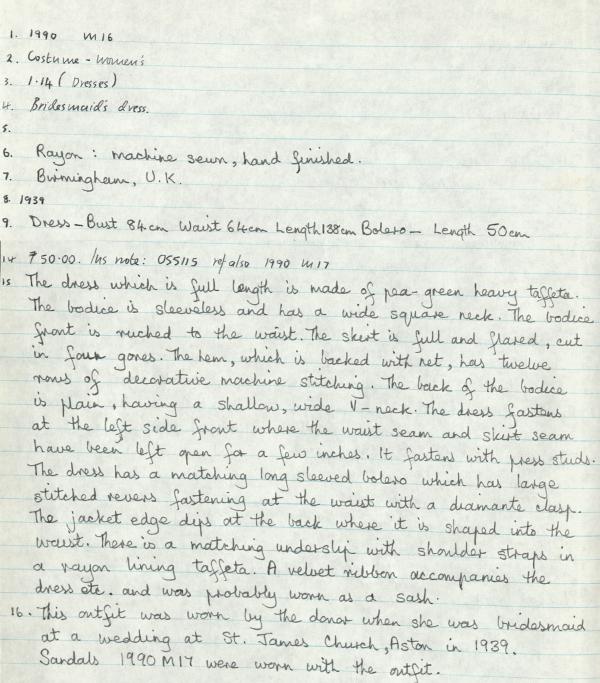 1. 1990 M16
2. Costume - Women's
3. 1.14 (Dresses)
4. Bridesmaid's dress.
5.
6. Rayon : machine sewn, hand finished.
7. Birmingham, U.K.
8. 1939
9. Dress - Bust 84cm Waist 64cm Length 138cm Bolero - Length 50cm
14 50.00. Ins note: OSS115 ref also 1990 M17
15 The dress which is full length is made of pea-green heavy taffeta.
The bodice is sleeveless and has a wide square neck. The bodice
front is ruched to the waist. The skirt is full and flared, cut
in four gores. The hem, which is backed with net, has twelve
rows of decorative machine stitching. The back of the bodice
is plain, having a shallow, wide V-neck. The dress fastens
at the left side front where the waist seam and skirt seam
have been left open for a few inches. It fastens with press studs.
The dress has a matching long sleeved bolero which has large
stitched revers fastening at the waist with a diamante clasp.
The jacket edge dips at the back where it is shaped into the
waist. There is a matching underslip with shoulder straps in
a rayon lining taffeta. A velvet ribbon accompanies the
dress etc. and was probably worn as a sash.
16. This outfit was worn by the donor when she was bridesmaid
at a wedding at St. James Church, Aston in 1939.
Sandals 1990 M17 were worn with the outfit.